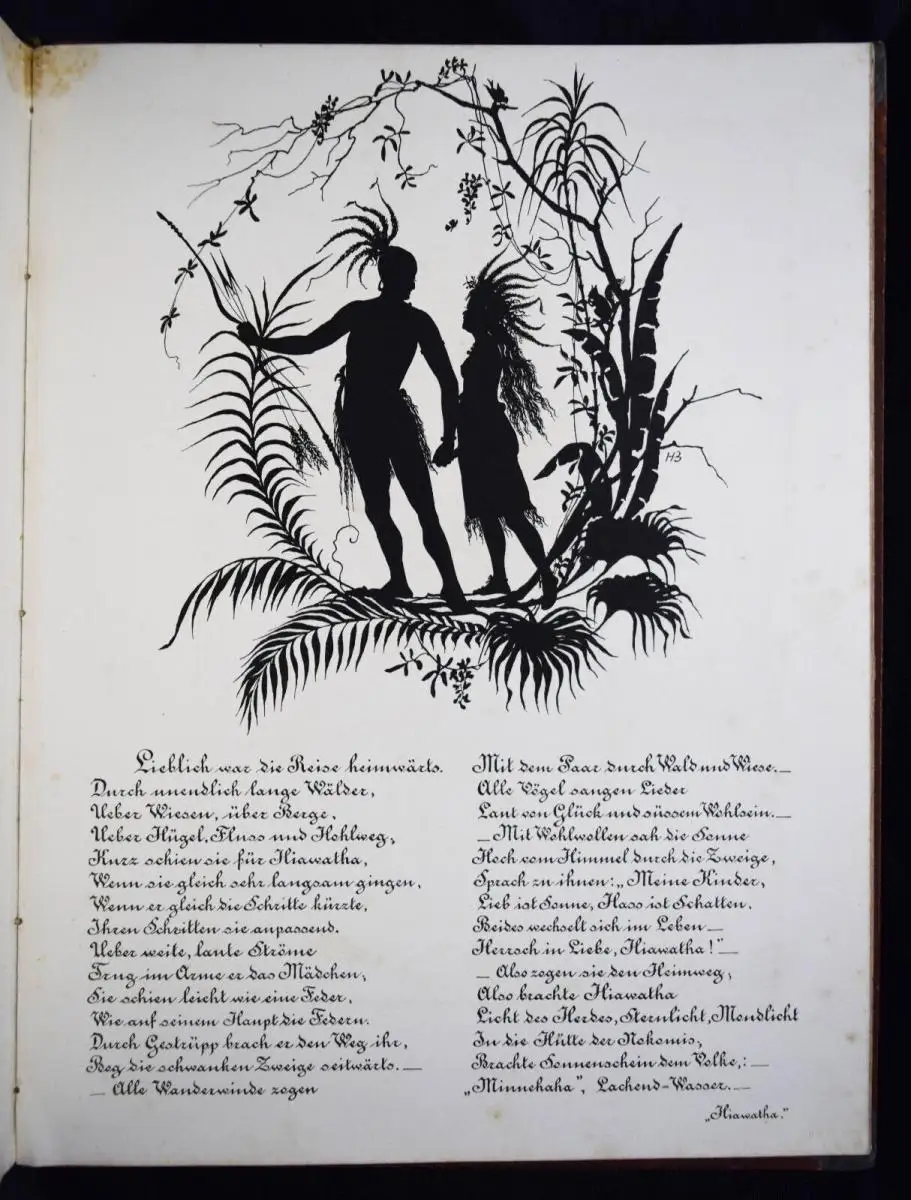 HB
Lieblich war die Reise heimwärts.
Durch unendlich lange Wälder,
Ueber Wiesen, über Berge,
Ueber Hügel, Fluss und Hohlweg;
Kurz schien sie für Hiawatha,
Wenn sie gleich sehr langsam gingen,
Wenn er gleich die Schritte kürzte,
Ihren Schritten sie anpassend.
Ueber weite, laute Ströme
Trug im Arme er das Mädchen;
Sie schien leicht wie eine Feder,
Wie auf seinem Haupt die Federn.
Durch Gestrüpp brach er den Weg ihr,
Bog die schwanken Zweige seitwärts. —
— Alle Wanderwinde zogen
Mit dem Paar durch Wald und Wiese. —
Alle Vögel sangen Lieder
Laut von Glück und süssem Wohlsein. —
— Mit Wohlwollen sah die Sonne
Hoch vom Himmel durch die Zweige,
Sprach zu ihnen: „Meine Kinder,
Lieb ist Sonne, Hass ist Schatten,
Beides wechselt sich im Leben —
Herrsch in Liebe, Hiawatha!" —
— Also zogen sie den Heimweg;
Also brachte Hiawatha
Licht des Herdes, Sternlicht, Mondlicht
In die Hütte der Nokomis;
Brachte Sonnenschein dem Volke,: —
„Minnehaha", Lachend-Wasser. —
„Hiawatha."